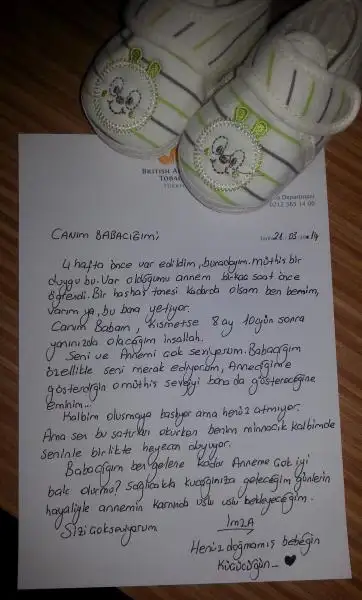 BRITISH A
TOBA
TÜRKİY
Department
0212 365 14 00
21.03.2014
CANIM BABACIĞIM;
4 hafta önce var edildim, buradayım. müthiş bir
duygu bu. Var olduğumu annem birkaç saat önce
öğrendi. Bir haşhaş tanesi kadarda olsam ben benim,
varım ya, bu bana yetiyor.
Canım Babam, Kısmetse 8 ay 10 gün sonra
yanınızda olacağım inşallah.
Seni ve Annemi çok seviyorum. Babacığım
özellikle seni merak ediyorum, Anneciğime
gösterdiğin o müthiş sevgiyi bana da göstereceğine
eminim...
Kalbim oluşmaya başlıyor ama henüz atmıyor.
Ama sen bu satırları okurken benim minnacık kalbimde
seninle birlikte heyecan duyuyor.
Babacığım ben gelene kadar Anneme çok iyi
bak olurmu? Sağlıcakla kucağınıza geleceğim günlerin
hayaliyle annemin karnında uslu uslu bekleyeceğim.
Sizi çokseviyorum
İMZA
Henüz doğmamış bebeğin
Küçücüğün...